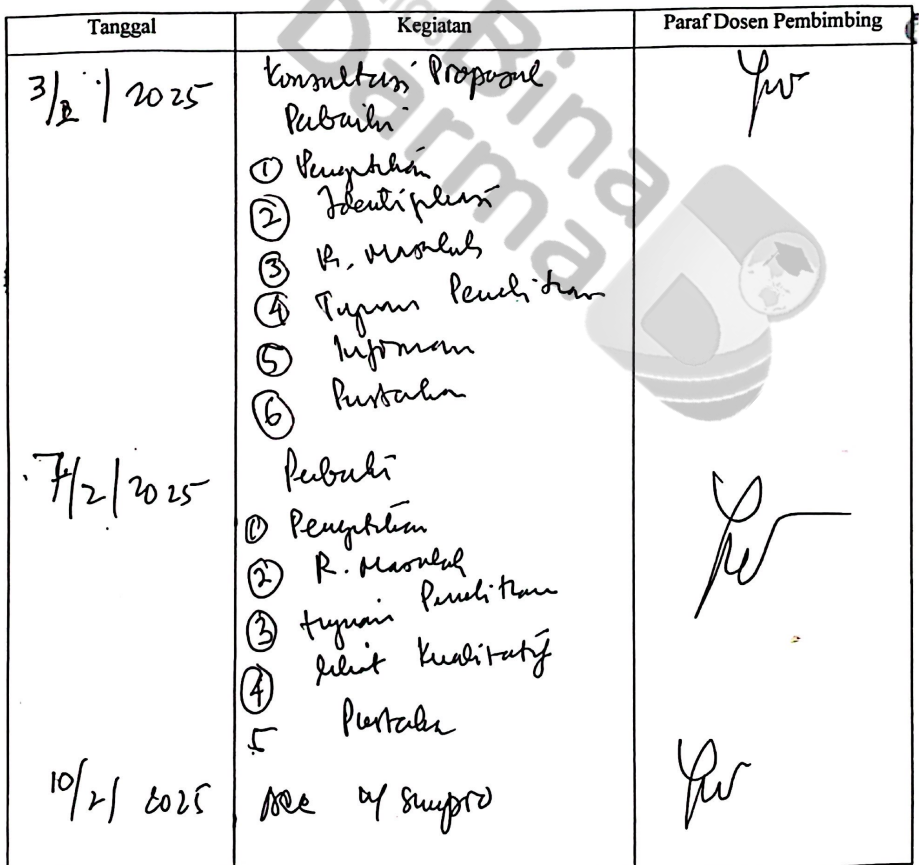 Tanggal Kegiatan Paraf Dosen Pembimbing
3/2/2025 Konsultasi Proposal
Perbaiki
① Pengetikan
② Identifikasi
③ R. Masalah
④ Tujuan Penelitian
⑤ Informan
⑥ Pustaka
7/2/2025 Perbaiki
① Pengetikan
② R. Masalah
③ tujuan Penelitian
④ Kualitatif
5 Pustaka
10/2/2025 Acc Sempro
Bina
Darma